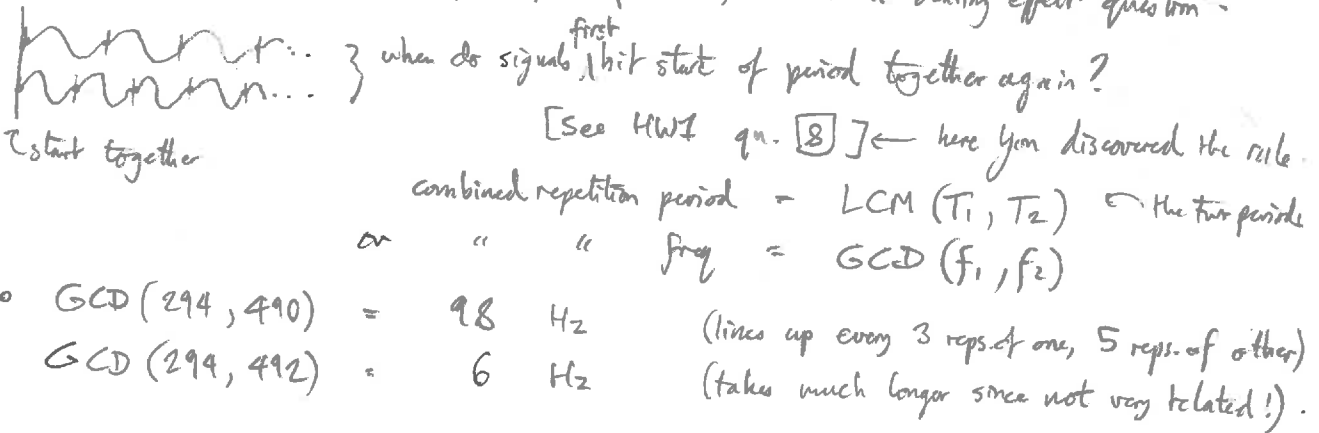 effect question.
} when do signals first hit start of period together again?
↑ start together
[See HW1 qu. 8] ← here you discovered the rule.
combined repetition period = LCM (T₁, T₂) the two periods
or " " freq = GCD (f₁, f₂)
GCD (294, 490) = 98 Hz (lines up every 3 reps. of one, 5 reps. of other)
GCD (294, 492) = 6 Hz (takes much longer since not very related!).